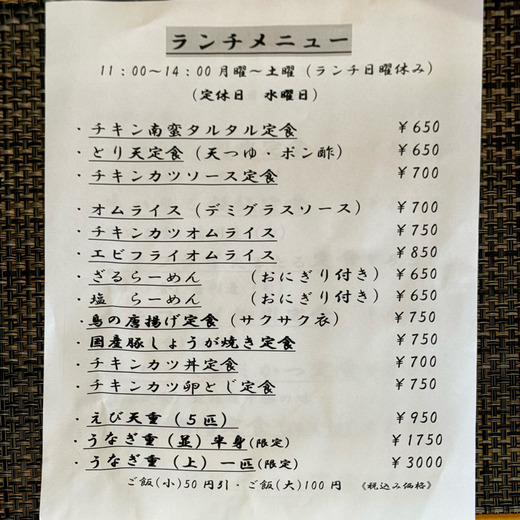 ランチメニュー
11:00～14:00月曜～土曜(ランチ日曜休み)
(定休日 水曜日)
・チキン南蛮タルタル定食 ¥650
・とり天定食(天つゆ・ポン酢) ¥650
・チキンカツソース定食 ¥700
・オムライス(デミグラスソース) ¥700
・チキンカツオムライス ¥750
・エビフライオムライス ¥850
・ざるらーめん (おにぎり付き) ¥650
・塩 らーめん (おにぎり付き) ¥650
・鳥の唐揚げ定食(サクサク衣) ¥750
・国産豚しょうが焼き定食 ¥750
・チキンカツ丼定食 ¥700
・チキンカツ卵とじ定食 ¥750
・えび天重(5匹) ¥950
・うなぎ重(並)半身(限定) ¥1750
・うなぎ重(上)一匹(限定) ¥3000
ご飯(小)50円引・ご飯(大)100円 《税込み価格》